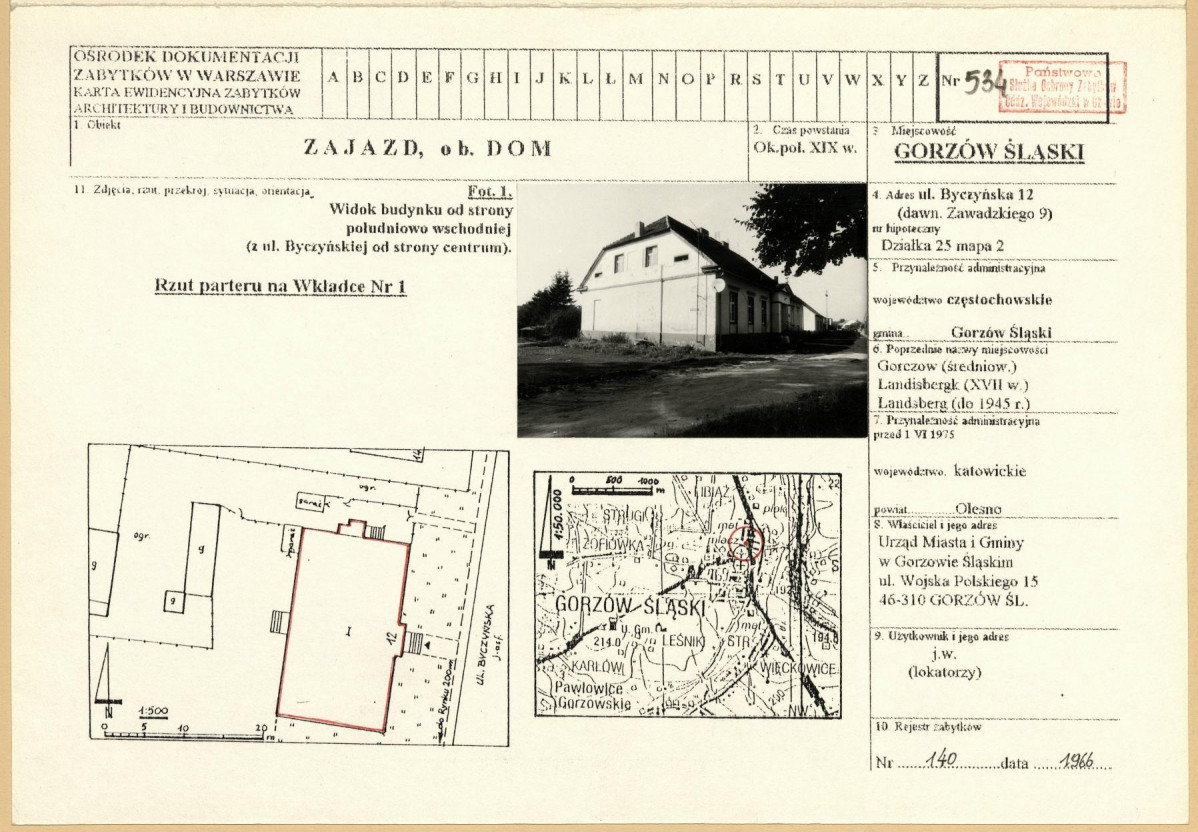 OŚRODEK DOKUMENTACJI
ZABYTKÓW W WARSZAWIE
KARTA EWIDENCYJNA ZABYTKÓW
ARCHITEKTURY I BUDOWNICTWA
A B C D E F G H I J K L Ł M N O P R S T U V W X Y Z
Nr 534
Państwowa
Służba Ochrony Zabytków
1. Obiekt
ZAJAZD, ob. DOM
2. Czas powstania
Ok.poł. XIX w.
3 Miejscowość
GORZÓW ŚLĄSKI
11. Zdjęcia, rzut, przekrój, sytuacja, orientacja
Fot. 1.
Widok budynku od strony
południowo wschodniej
(z ul. Byczyńskiej od strony centrum).
Rzut parteru na Wkładce Nr 1
4. Adres ul. Byczyńska 12
(dawn. Zawadzkiego 9)
nr hipoteczny
Działka 25 mapa 2
5. Przynależność administracyjna
województwo częstochowskie
gmina.. Gorzów Śląski
6. Poprzednie nazwy miejscowości
Gorczow (średniow.)
Landisbergk (XVII w.)
Landsberg (do 1945 r.)
7. Przynależność administracyjna
przed 1 VI 1975
województwo. katowickie
powiat...........Olesno
8. Właściciel i jego adres
Urząd Miasta i Gminy
w Gorzowie Śląskim
ul. Wojska Polskiego 15
46-310 GORZÓW ŚL.
9. Użytkownik i jego adres
j.w.
(lokatorzy)
10. Rejestr zabytków
Nr ......140...............data .....1966.....
14
ogr.
garaż
ogr.
g
g
g
I
12
UL. BYCZYŃSKA
j. asf.
do Rynku 200m
N
1:500
0 5 10 20 m
1:50.000
N
0 500 1000
m
LIBIAŻ
22
STRUGI
ZOFIÓWKA
GORZÓW ŚLĄSKI
U. Gm.
214.0
LEŚNIKI
STR.
194.8
KARŁÓW
WIĘCKOWICE
Pawłowice
Gorzowskie
200
NW